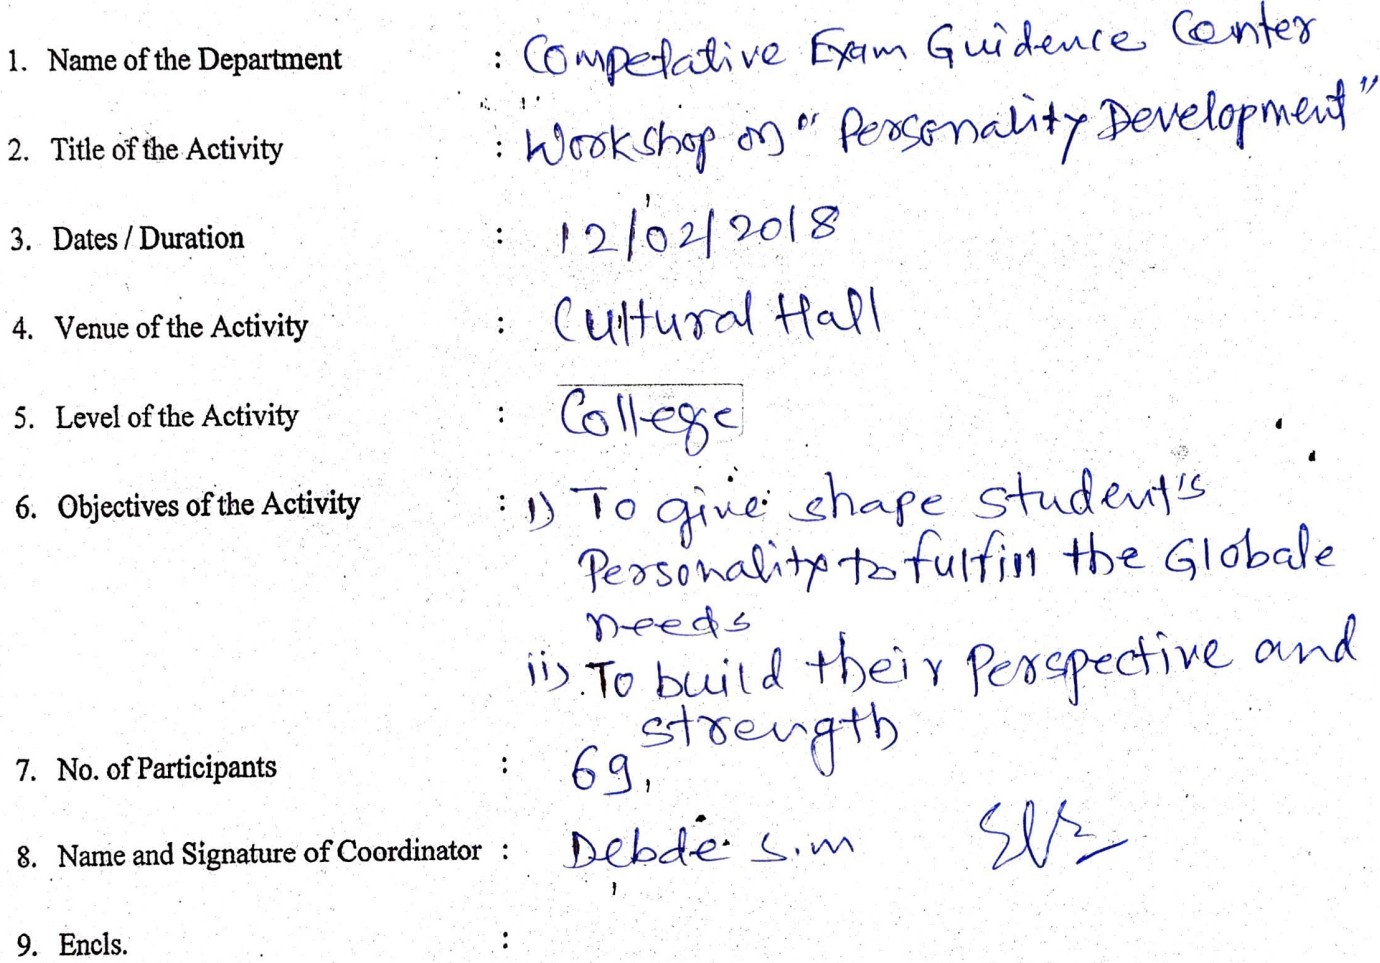 1. Name of the Department : Competative Exam Guidence Center
2. Title of the Activity : Workshop on "Personality Development"
3. Dates / Duration : 12/02/2018
4. Venue of the Activity : Cultural Hall
5. Level of the Activity : College
6. Objectives of the Activity : i) To give shape student's
Personality to fulfill the Globale
needs
ii). To build their Perspective and
strength
7. No. of Participants : 69,
8. Name and Signature of Coordinator : Debde S.m
9. Encls. :